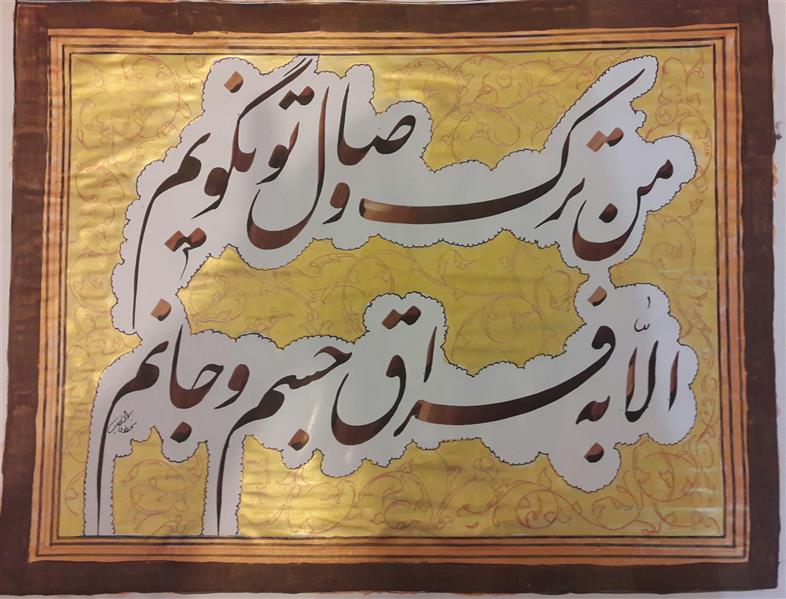 من ترک وصال تو نگویم
الّا به فراق جسم و جانم